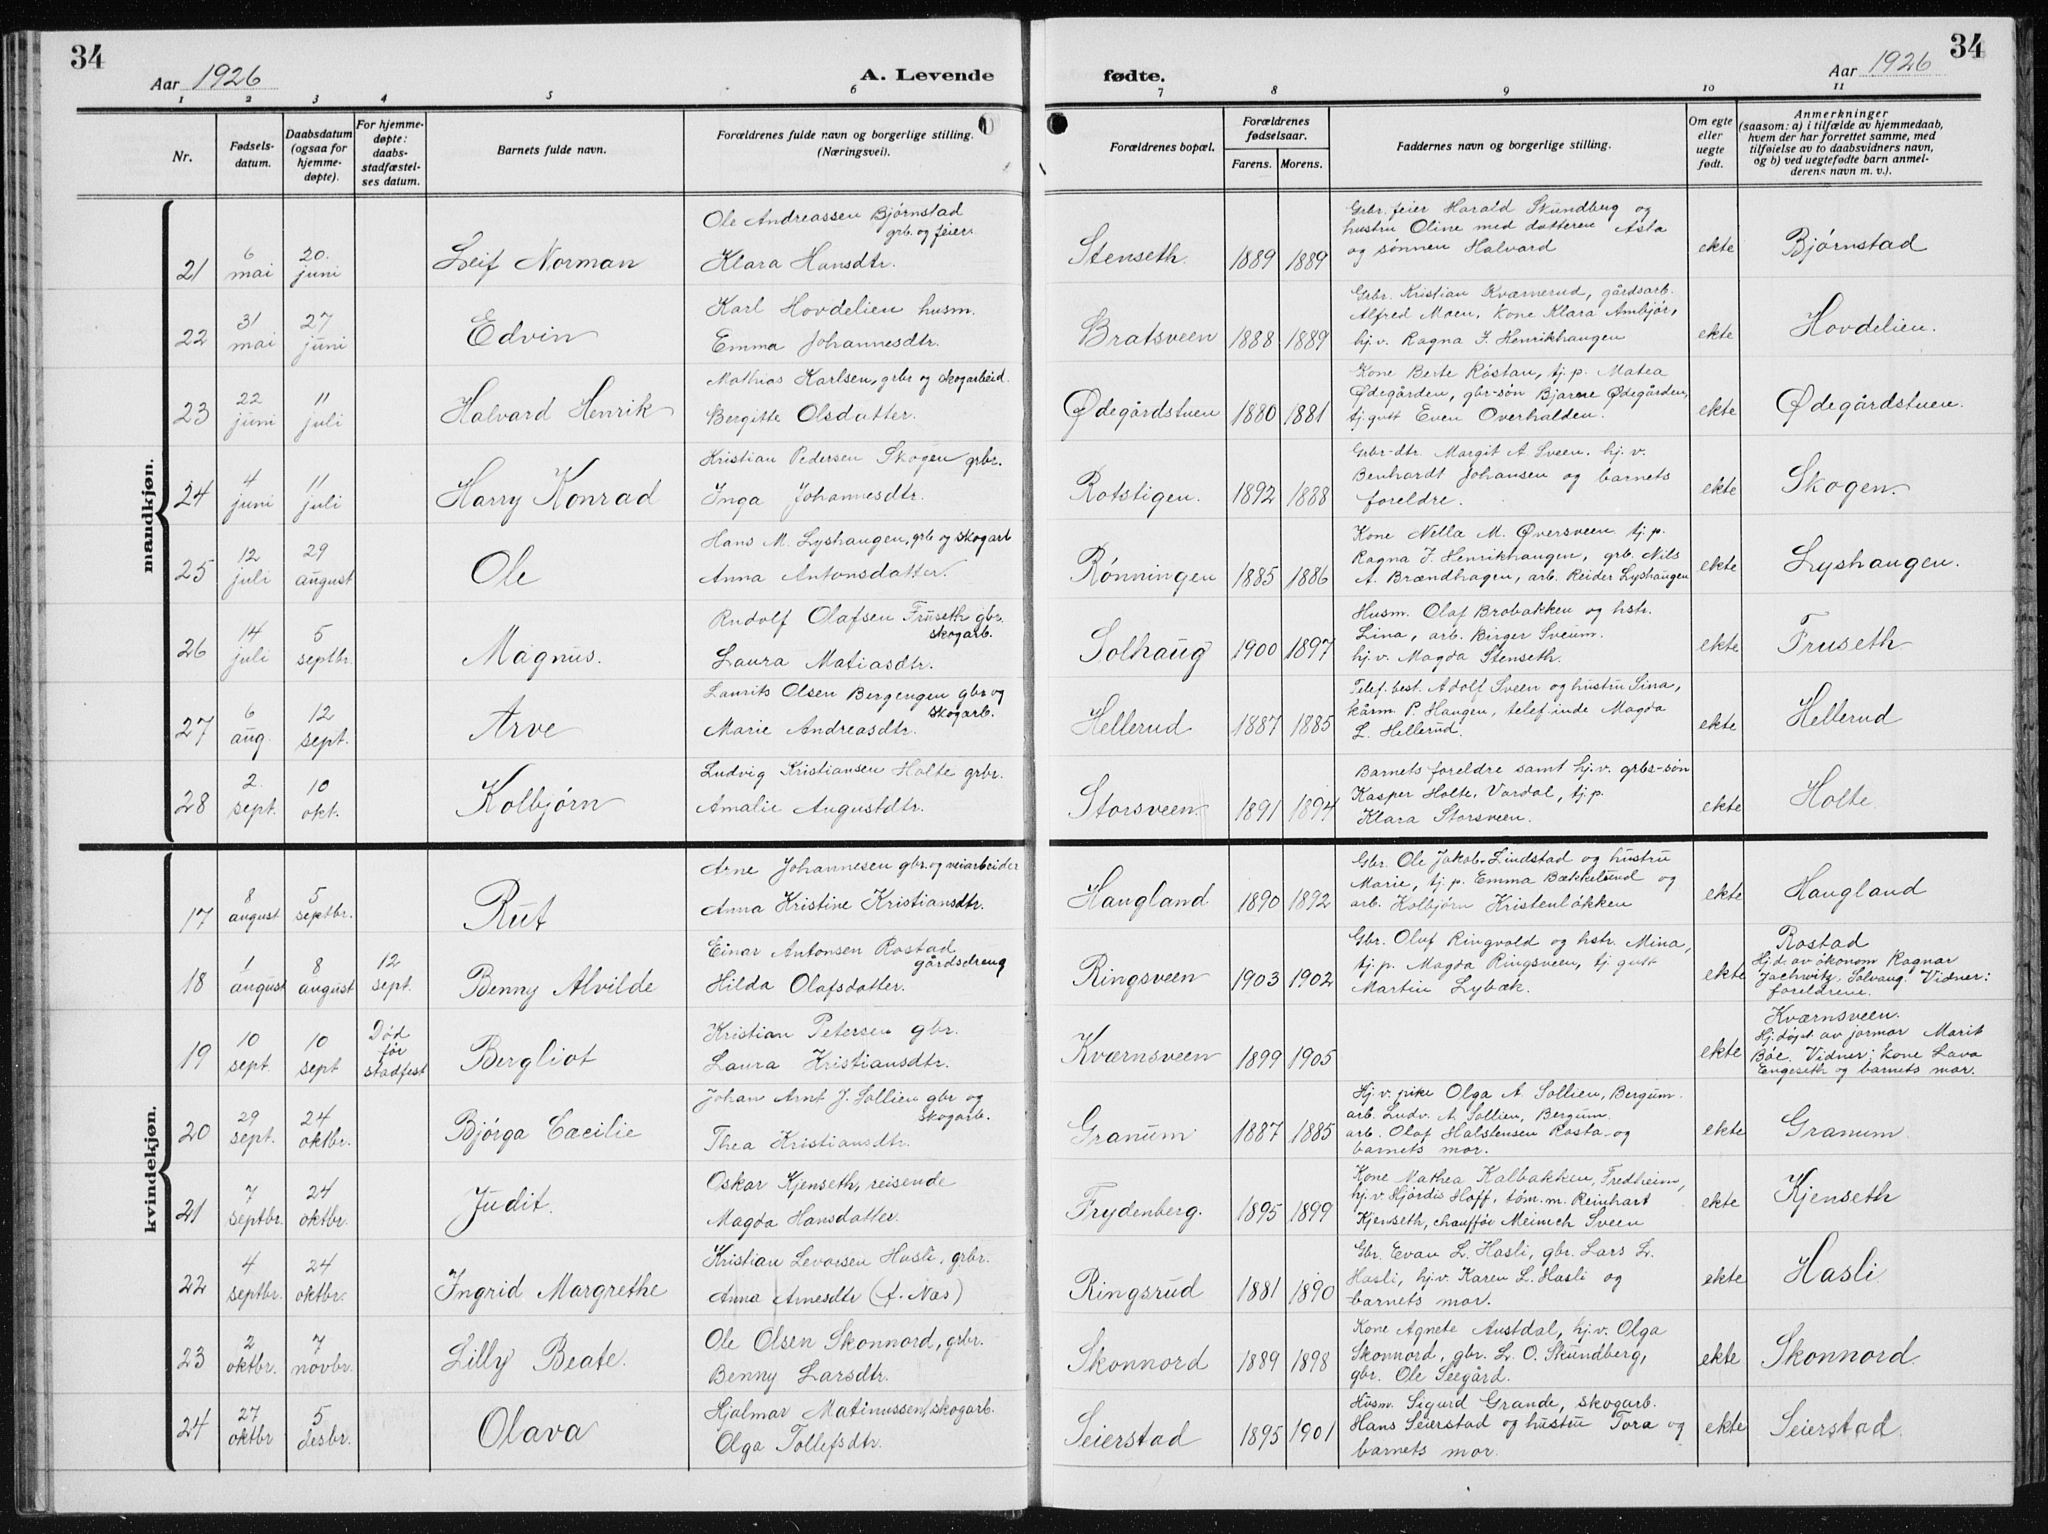 34
Aar 1926
A. Levende
fødte.
Aar 1926
34
1 2 3 4 5 6 7 8 9 10 11
Nr.
Fødsels-
datum.
Daabsdatum
(ogsaa for
hjemme-
døpte).
For hjemme-
døpte:
daabs-
stadfæstel-
ses datum.
Barnets fulde navn.
Forældrenes fulde navn og borgerlige stilling.
(Næringsvei).
Forældrenes bopæl.
Forældrenes
fødselsaar.
Farens. Morens.
Faddernes navn og borgerlige stilling.
Om egte
eller
uegte
født.
Anmerkninger
(saasom: a) i tilfælde av hjemmedaab,
hvem der har forrettet samme, med
tilføielse av to daabsvidners navn,
og b) ved uegtefødte barn anmel-
derens navn m. v.).
mandkjøn.
21
6
mai
20.
juni
Leif Norman
Ole Andreassen Bjørnstad
grb. og feier
Klara Hansdtr.
Stenseth
1889 1889
Grbr. feier Harald Skundberg og
hustru Oline med datteren Asta
og sønnen Halvard
ekte
Bjørnstad
22
31
mai
27
juni
Edvin
Karl Hovdelien husm.
Emma Johannesdtr.
Bratsveen
1888 1889
Grbr. Kristian Kværnerud, gårdsarb.
Alfred Moen, kone Klara Ambjør,
hj.v. Ragna J. Henrikhaugen
ekte
Hovdelien.
23
22
juni
11
juli
Halvard Henrik
Mathias Karlsen, grbr og skogarbeid.
Bergitte Olsdatter.
Ødegårdstuen
1880 1881
Kone Berte Røstau, tj.p. Matea
Ødegården, gbr-søn Bjarne Ødegården,
tj.gutt Even Overhalden.
ekte
Ødegårdstuen.
24
4
juni
11
juli
Harry Konrad
Kristian Pedersen Skogen grbr.
Inga Johannesdtr.
Rotstigen.
1892 1888
Grbr-dtr. Margit A. Sveen. hj.v.
Benhardt Johansen og barnets
foreldre.
ekte
Skogen.
25
12
juli
29
august
Ole
Hans M. Lyshaugen, grb og skogarb
Anna Antonsdatter.
Rønningen
1885 1886
Kone Nella M. Øversveen tj.p.
Ragna J. Henrikhaugen, grb. Nils
A. Brændhagen, arb. Reider Lyshaugen
ekte
Lyshaugen.
26
14
juli
5
septbr.
Magnus.
Rudolf Olafsen Fruseth gbr.
skogarb.
Laura Matiasdtr.
Solhaug
1900 1897
Husm. Olaf Brobakken og hstr.
Lina, arb. Birger Sveum.
hj.v. Magda Stenseth.
ekte
Fruseth
27
6
aug.
12
sept.
Arve
Laurits Olsen Bergengen gbr og
skogarb.
Marie Andreasdtr.
Hellerud
1887 1885
Telef.best. Adolf Sveen og hustru Sina,
kårm. P. Haugen, telef.inde Magda
L. Hellerud.
ekte
Hellerud
28
2.
sept.
10
okt.
Kolbjørn
Ludvig Kristiansen Holte grbr.
Amalie Augustdtr.
Storsveen.
1891 1894
Barnets foreldre samt hj.v. grbr-søn
Kasper Holte, Vardal, tj.p.
Klara Storsveen.
ekte
Holte
kvindekjøn.
17
8
august
5
septbr.
Rut
Arne Johannesen gbr. og veiarbeider
Anna Kristine Kristiansdtr.
Haugland
1890 1892
Gbr. Ole Jakob. Lindstad og hustru
Marie, tj.p. Emma Bækkelund og
arb. Kolbjørn Kristenløkken
ekte
Haugland
18
1
august
8
august
12
sept.
Benny Alvilde
Einar Antonsen Rostad
gårdsdreng
Hilda Olafsdatter.
Ringsveen
1903 1902
Gbr. Oluf Ringvold og hstr. Mina,
tj.p. Magda Ringsveen, tj.gutt
Martin Lybæk.
ekte
Rostad
Hj.d. av økonom Ragnar
Jachwitz, Solvang. Vidner:
foreldrene.
19
10
sept.
10
sept
Død
før
stadfest
Bergliot
Kristian Petersen gbr.
Laura Kristiansdtr.
Kværnsveen
1899 1905
ekte
Kværnsveen.
Hj.døpt av jormor Marit
Bøe. Vidner: kone Lava
Engeseth og barnets mor.
20
29
sept.
24
oktbr.
Bjørga Cæcilie
Johan Arnt J. Sollien gbr og
skogarb.
Thea Kristiansdtr.
Granum
1887 1885
Hj.v. pike Olga A. Sollien, Bergum.
arb. Ludv. A. Sollien, Bergum.
arb. Olaf Halstensen Rosta og
barnets mor.
ekte
Granum
21
7
septbr.
24
oktbr.
Judit.
Oskar Kjenseth, reisende
Magda Hansdatter.
Frydenberg.
1895 1899
Kone Mathea Kalbakken, Fredheim,
hj.v. Hjørdis Hoff, tøm.m. Reinhart
Kjenseth, chauffør Meinich Sveen
ekte
Kjenseth
22
4
septbr.
24
oktbr.
Ingrid Margrethe
Kristian Levorsen Hasli, grbr.
Anna Arnesdtr (f. Næs)
Ringsrud
1881 1890
Gbr. Evan L. Hasli, gbr. Lars L.
Hasli, hj.v. Karen L. Hasli og
barnets mor.
ekte
Hasli
23
2
oktbr.
7
novbr.
Lilly Beate.
Ole Olsen Skonnord, grbr.
Benny Larsdtr.
Skonnord
1889 1898
Kone Agnete Austdal, hj.v. Olga
Skonnord, gbr. L. O. Skundberg,
gbr. Ole Seegård.
ekte
Skonnord
24
27
oktbr
5
desbr.
Olava
Hjalmar Matinussen, skogarb.
Olga Tollefsdtr.
Seierstad
1895 1901
Husm. Sigurd Grande, skogarb.
Hans Seierstad og hustru Tora og
barnets mor.
ekte
Seierstad